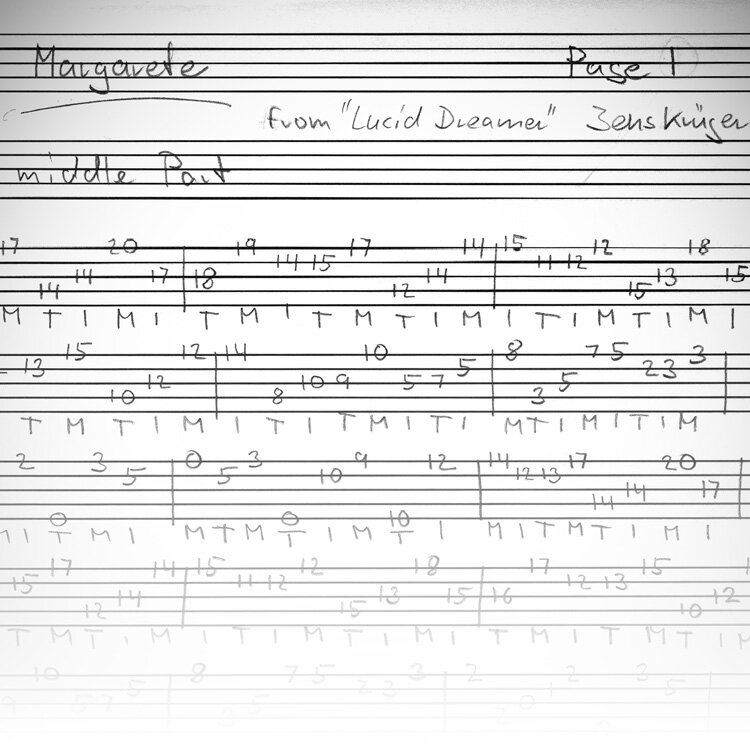 Margarete Page 1
from "Lucid Dreamer" Jens Krüger
middle Part
17 14 14 20 17 18 19 14 15 17 12 14 14 15 11 12 12 15 13 18 15
M T I M I T M I T M T I M I T I M T I M I
13 15 10 12 12 14 8 10 9 10 5 7 5 8 3 5 7 5 2 3 3
T M T I M I T I T M I T I M T I M I T I M
2 0 3 5 0 5 3 0 10 9 10 12 14 12 13 17 14 14 20 17
M I T M I M T M T I M T I M I T M T I M I
15 17 12 14 14 15 11 12 12 15 13 18 15 16 17 12 13 15 10 12
T M T I M I T I M T I M I T M I T M T I M
10 5 7 5 8 3 5 7 5 2 3 3 2 0 1 2